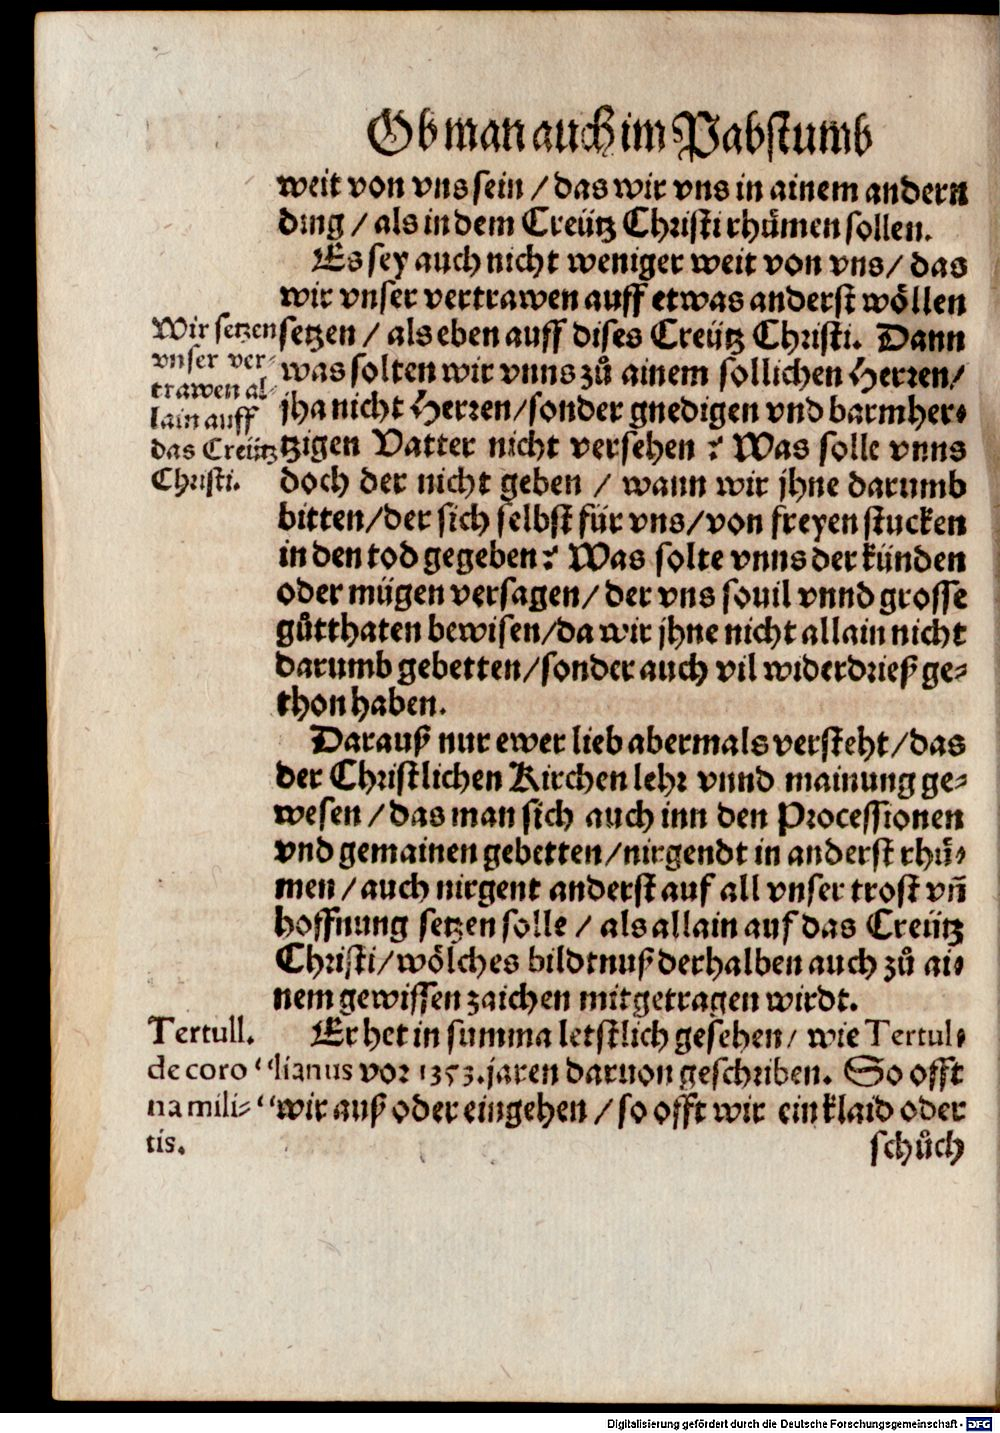 Ob man auch im Pabstumb
weit von vns sein / das wir vns in ainem andern
ding / als in dem Creütz Christi rhůmen sollen.
Es sey auch nicht weniger weit von vns / das
wir vnser vertrawen auff etwas anderst wöllen
setzen / als eben auff dises Creütz Christi. Dann
was solten wir vnns zů ainem sollichen Herren /
jha nicht Herren / sonder gnedigen vnd barmher⸗
tzigen Vatter nicht versehen ? Was solle vnns
doch der nicht geben / wann wir jhne darumb
bitten / der sich selbst für vns / von freyen stucken
in den tod gegeben ? Was solte vnns der künden
oder mügen versagen / der vns souil vnnd grosse
gůtthaten bewisen / da wir jhne nicht allain nicht
darumb gebetten / sonder auch vil widerdrieß ge⸗
thon haben.
Darauß nur ewer lieb abermals versteht / das
der Christlichen Kirchen lehr vnnd mainung ge⸗
wesen / das man sich auch inn den Processionen
vnd gemainen gebetten / nirgendt in anderst rhů⸗
men / auch nirgent anderst auf all vnser trost vñ
hoffnung setzen solle / als allain auf das Creütz
Christi / wölches bildtnuß derhalben auch zů ai⸗
nem gewissen zaichen mitgetragen wirdt.
Er het in summa letstlich gesehen / wie Tertul⸗
lianus vor 1353. jaren daruon geschriben. So offt
wir auß oder eingehen / so offt wir ein klaid oder
schůch
Wir setzen
vnser ver⸗
trawen al⸗
lain auff
das Creütz
Christi.
Tertull.
de coro “
na mili⸗ “
tis.
Digitalisierung gefördert durch die Deutsche Forschungsgemeinschaft - DFG